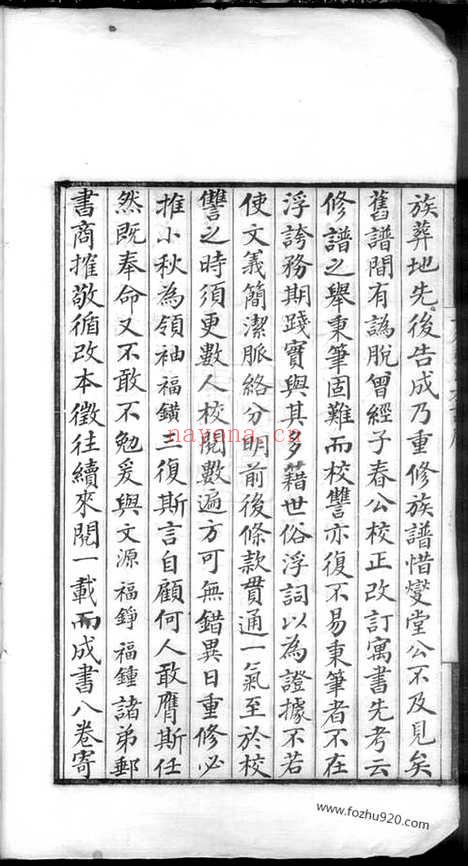 族葬地先後告成乃重修族譜惜燮堂公不及見矣
舊譜間有譌脫曾經子春公校正改訂寓書先考云
修譜之舉秉筆固難而校讐亦復不易秉筆者不在
浮誇務期踐實與其多藉世俗浮詞以為證據不若
使文義簡潔脈絡分明前後條款貫通一氣至於校
讐之時須更數人校閱數遍方可無錯異日重修必
推小秋為領袖福鐄三復斯言自顧何人敢膺斯任
然既奉命又不敢不勉爰與文源福錚福鍾諸弟郵
書商搉敬循改本徵往續來閱一載而成書八卷寄
nayana.cn
www.fozhu920.com